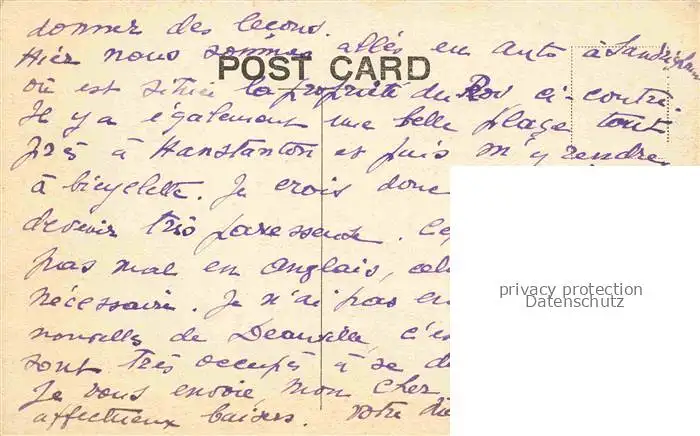 donner des leçons.
Hier nous sommes allés en auto à Sandrigham
POST CARD
où est située la propriété du Roi ci-contre.
Il y a également une belle plage tout
près à Hanstanton et puis m'y rendre
à bicyclette. Je crois donc
devenir très paresseuse.
pas mal en anglais,
nécessaire. Je n'ai pas
nouvelles de Deauville, c'es
sont très occupés à se
Je vous envoie, mon cher
affectueux baisers. Votre
privacy protection
Datenschutz